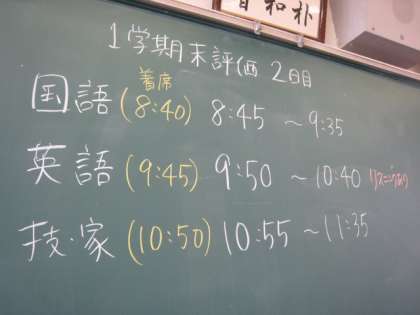 和朴
1学期末評価 2日目
着席
国語 (8:40) 8:45 ~ 9:35
英語 (9:45) 9:50 ~ 10:40 リスニングあり
技・家 (10:50) 10:55 ~ 11:35